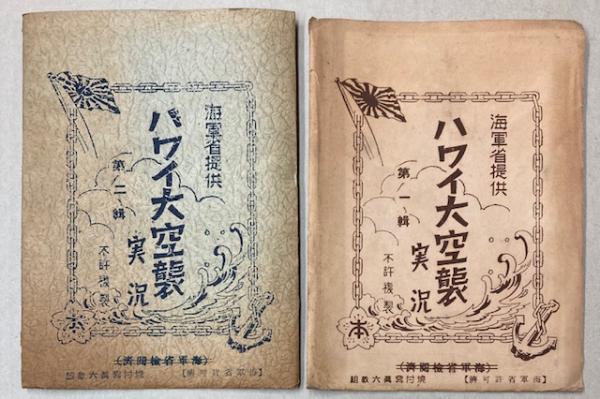 海軍省提供
ハワイ大空襲
実況
第二輯
不許複製
本
(海軍省檢閲濟)
【海軍省許可濟】 焼付寫眞六枚組
海軍省提供
ハワイ大空襲
実況
第一輯
不許複製
本
(海軍省檢閲濟)
【海軍省許可濟】 焼付寫眞六枚組